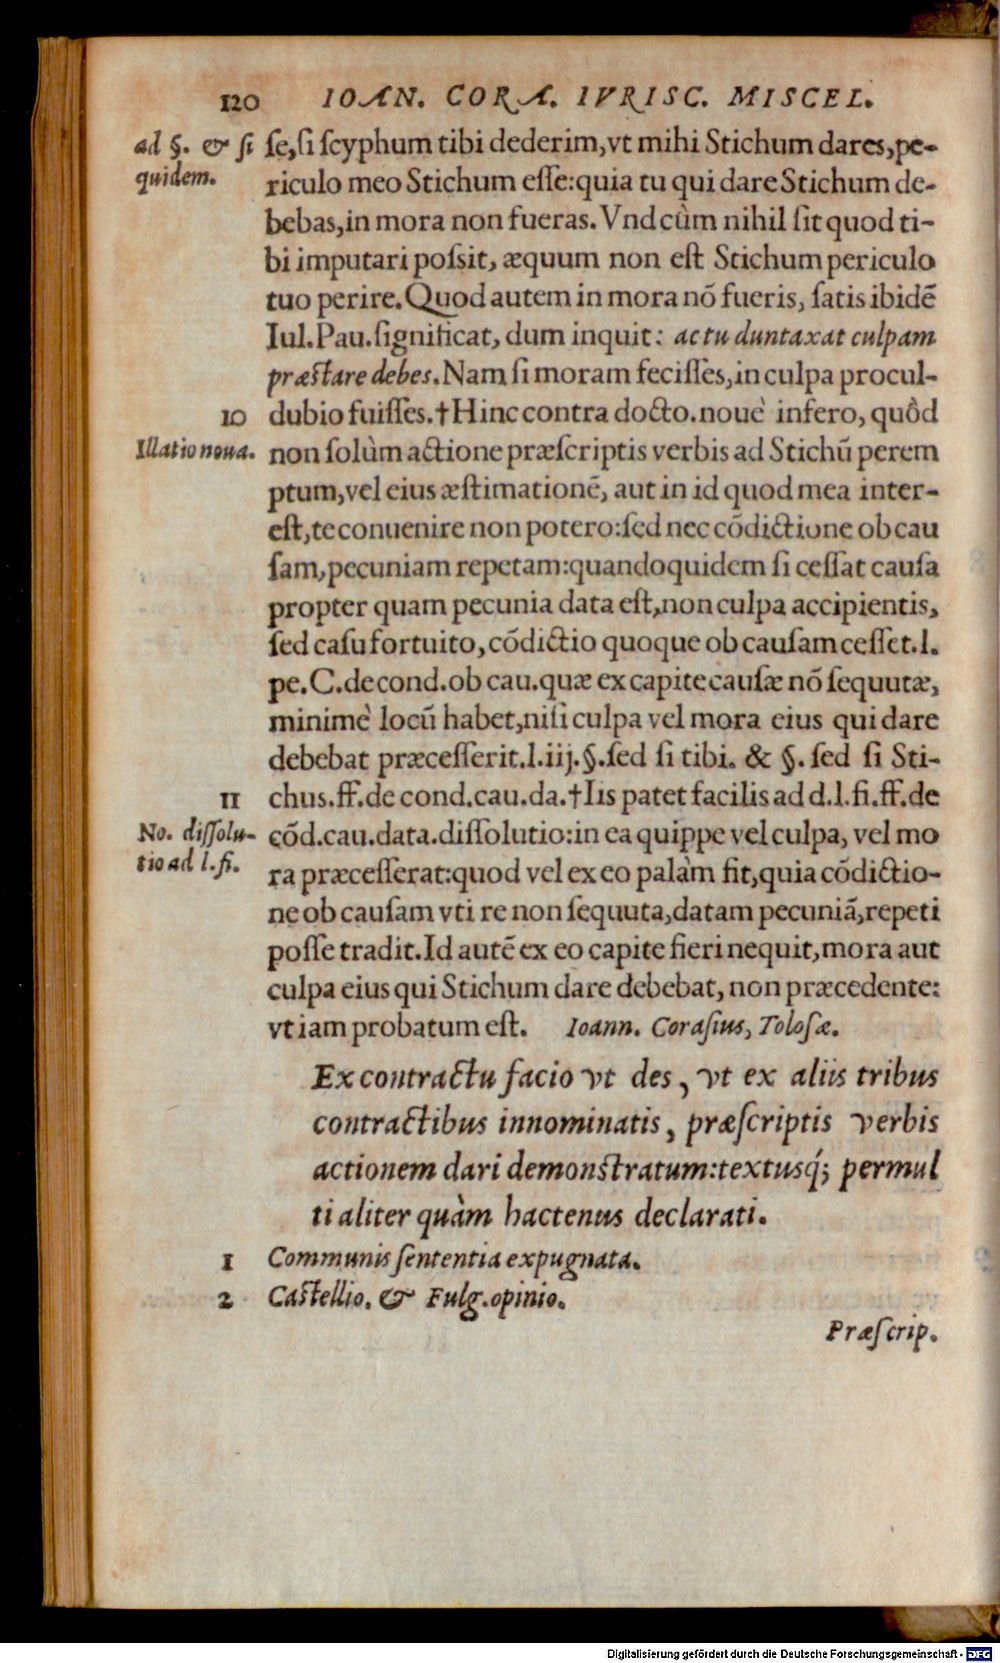 120 IOAN. CORA. IVRISC. MISCEL.
ad §. & si
quidem.
se, si scyphum tibi dederim, vt mihi Stichum dares, pe-
riculo meo Stichum esse: quia tu qui dare Stichum de-
bebas, in mora non fueras. Vnd cùm nihil sit quod ti-
bi imputari possit, æquum non est Stichum periculo
tuo perire. Quod autem in mora nō fueris, satis ibidē
Iul. Pau. significat, dum inquit: ac tu duntaxat culpam
præstare debes. Nam si moram fecisses, in culpa procul-
10 dubio fuisses. †Hinc contra docto. nouè infero, quòd
Illatio noua.
non solùm actione præscriptis verbis ad Stichū perem
ptum, vel eius æstimationē, aut in id quod mea inter-
est, te conuenire non potero: sed nec cōdictione ob cau
sam, pecuniam repetam: quandoquidem si cessat causa
propter quam pecunia data est, non culpa accipientis,
sed casu fortuito, cōdictio quoque ob causam cesset. l.
pe. C. de cond. ob cau. quæ ex capite causæ nō sequutæ,
minimè locū habet, nisi culpa vel mora eius qui dare
debebat præcesserit. l. iij. §. sed si tibi. & §. sed si Sti-
11 chus. ff. de cond. cau. da. †Iis patet facilis ad d. l. fi. ff. de
No. dissolu-
tio ad l. fi.
cōd. cau. data. dissolutio: in ea quippe vel culpa, vel mo
ra præcesserat: quod vel ex eo palàm fit, quia cōdictio-
ne ob causam vti re non sequuta, datam pecuniā, repeti
posse tradit. Id autē ex eo capite fieri nequit, mora aut
culpa eius qui Stichum dare debebat, non præcedente:
vt iam probatum est. Ioann. Corasius, Tolosæ.
Ex contractu facio vt des, vt ex aliis tribus
contractibus innominatis, præscriptis verbis
actionem dari demonstratum: textusq́; permul
ti aliter quàm hactenus declarati.
1 Communis sententia expugnata.
2 Castellio. & Fulg. opinio.
Præscrip.
Digitalisierung gefördert durch die Deutsche Forschungsgemeinschaft - DFG